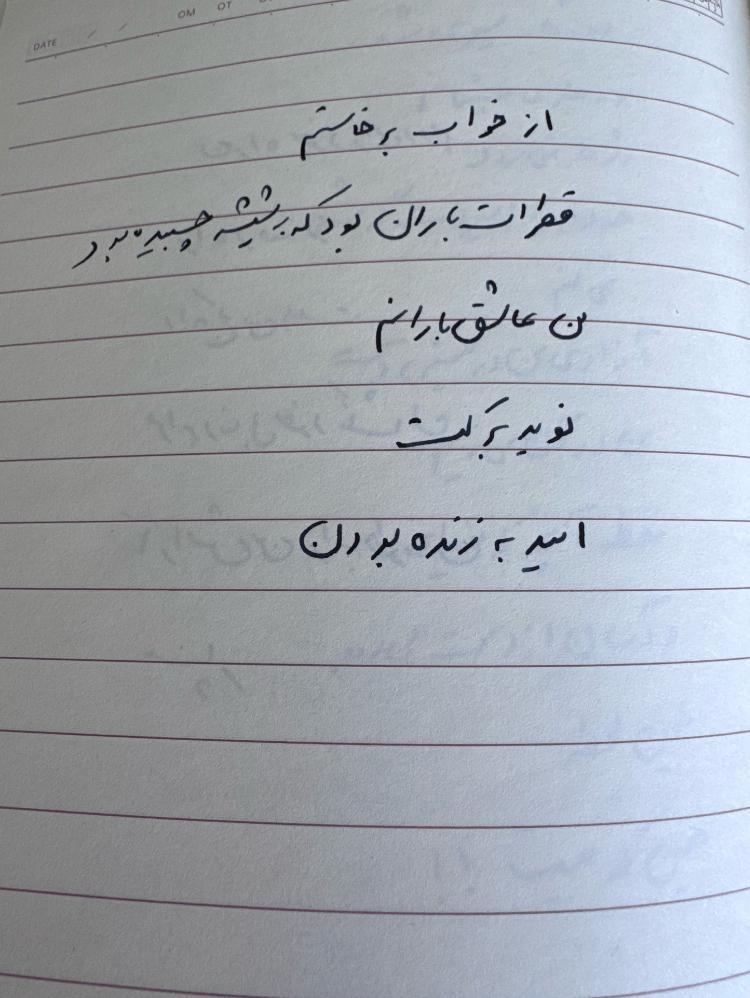 DATE / /
OM OT
از خواب برخاستم
قطرات باران بود که بر شیشه چسبیده بود
من عاشق بارانم
نوید برکت
امید به زنده بودن